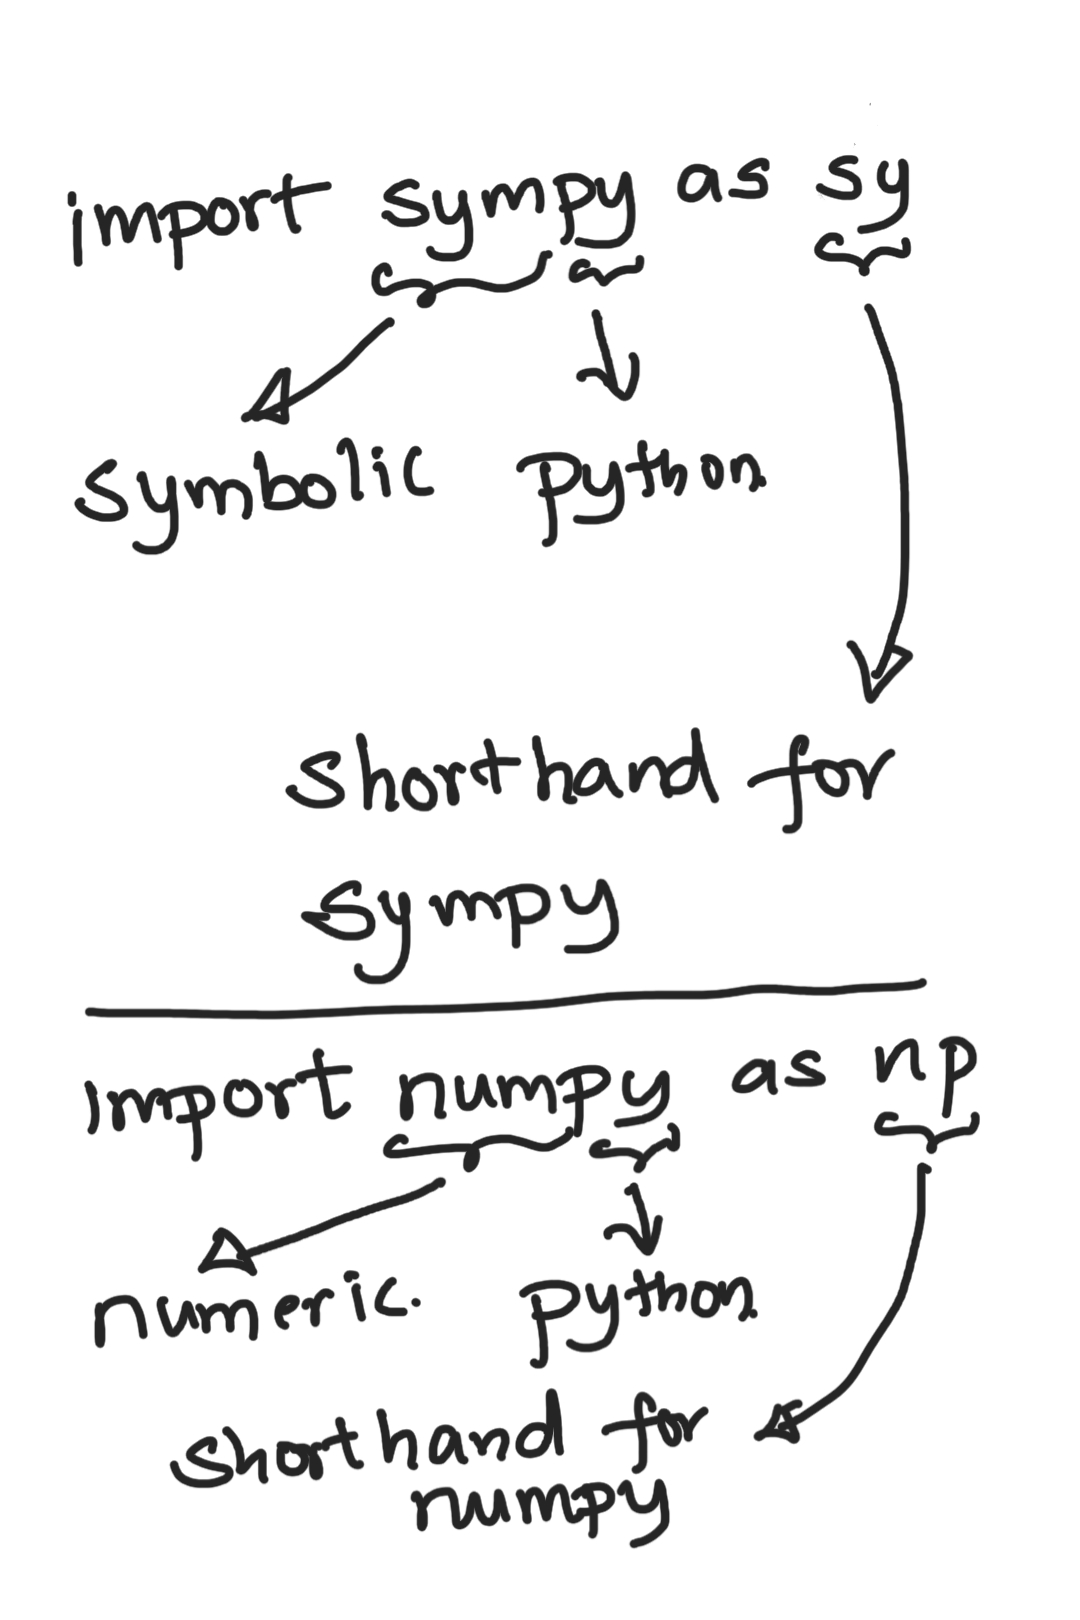 import sympy as sy
symbolic python
shorthand for
sympy
import numpy as np
numeric. python
shorthand for
numpy